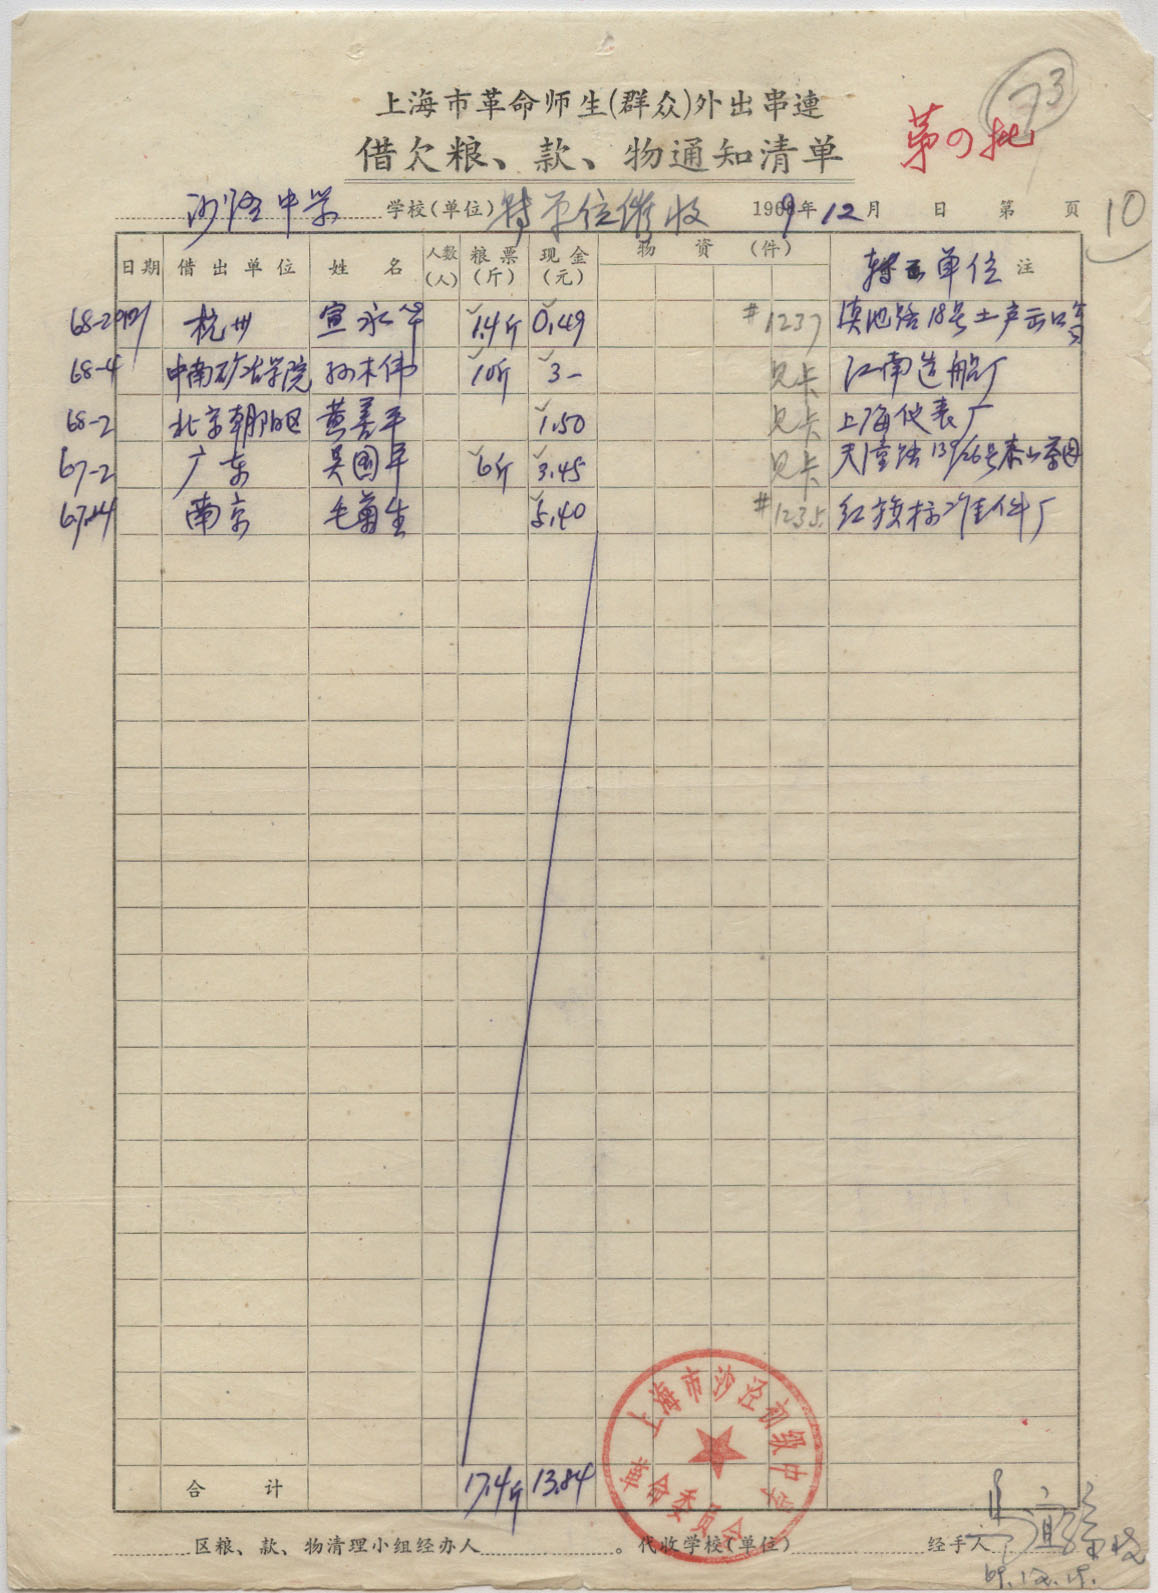 73
上海市革命师生(群众)外出串連
第四批
借欠粮、款、物通知清单
沙泾中学 学校(单位) 转单位催收 1969年12月 日 第 页
10
日期 借出单位 姓名 人数(人) 粮票(斤) 现金(元) 物资(件) 转至单位 注
68-2 杭州 宣永华 1.4斤 0.49 #1237 滇池路18号土产出口
68-4 中南矿冶学院 孙木伟 10斤 3- 见卡 江南造船厂
68-2 北京朝阳区 黄善平 1.50 见卡 上海仪表厂
67-2 广东 吴国平 6斤 3.45 见卡 天潼路139/26号泰山
67 南京 毛菊生 5.40 #1235 红旗标准件厂
合计 17.4斤 13.84
上海市沙泾初级中学
革命委员会
区粮、款、物清理小组经办人 。代收学校(单位) 经手人
69.12.19.